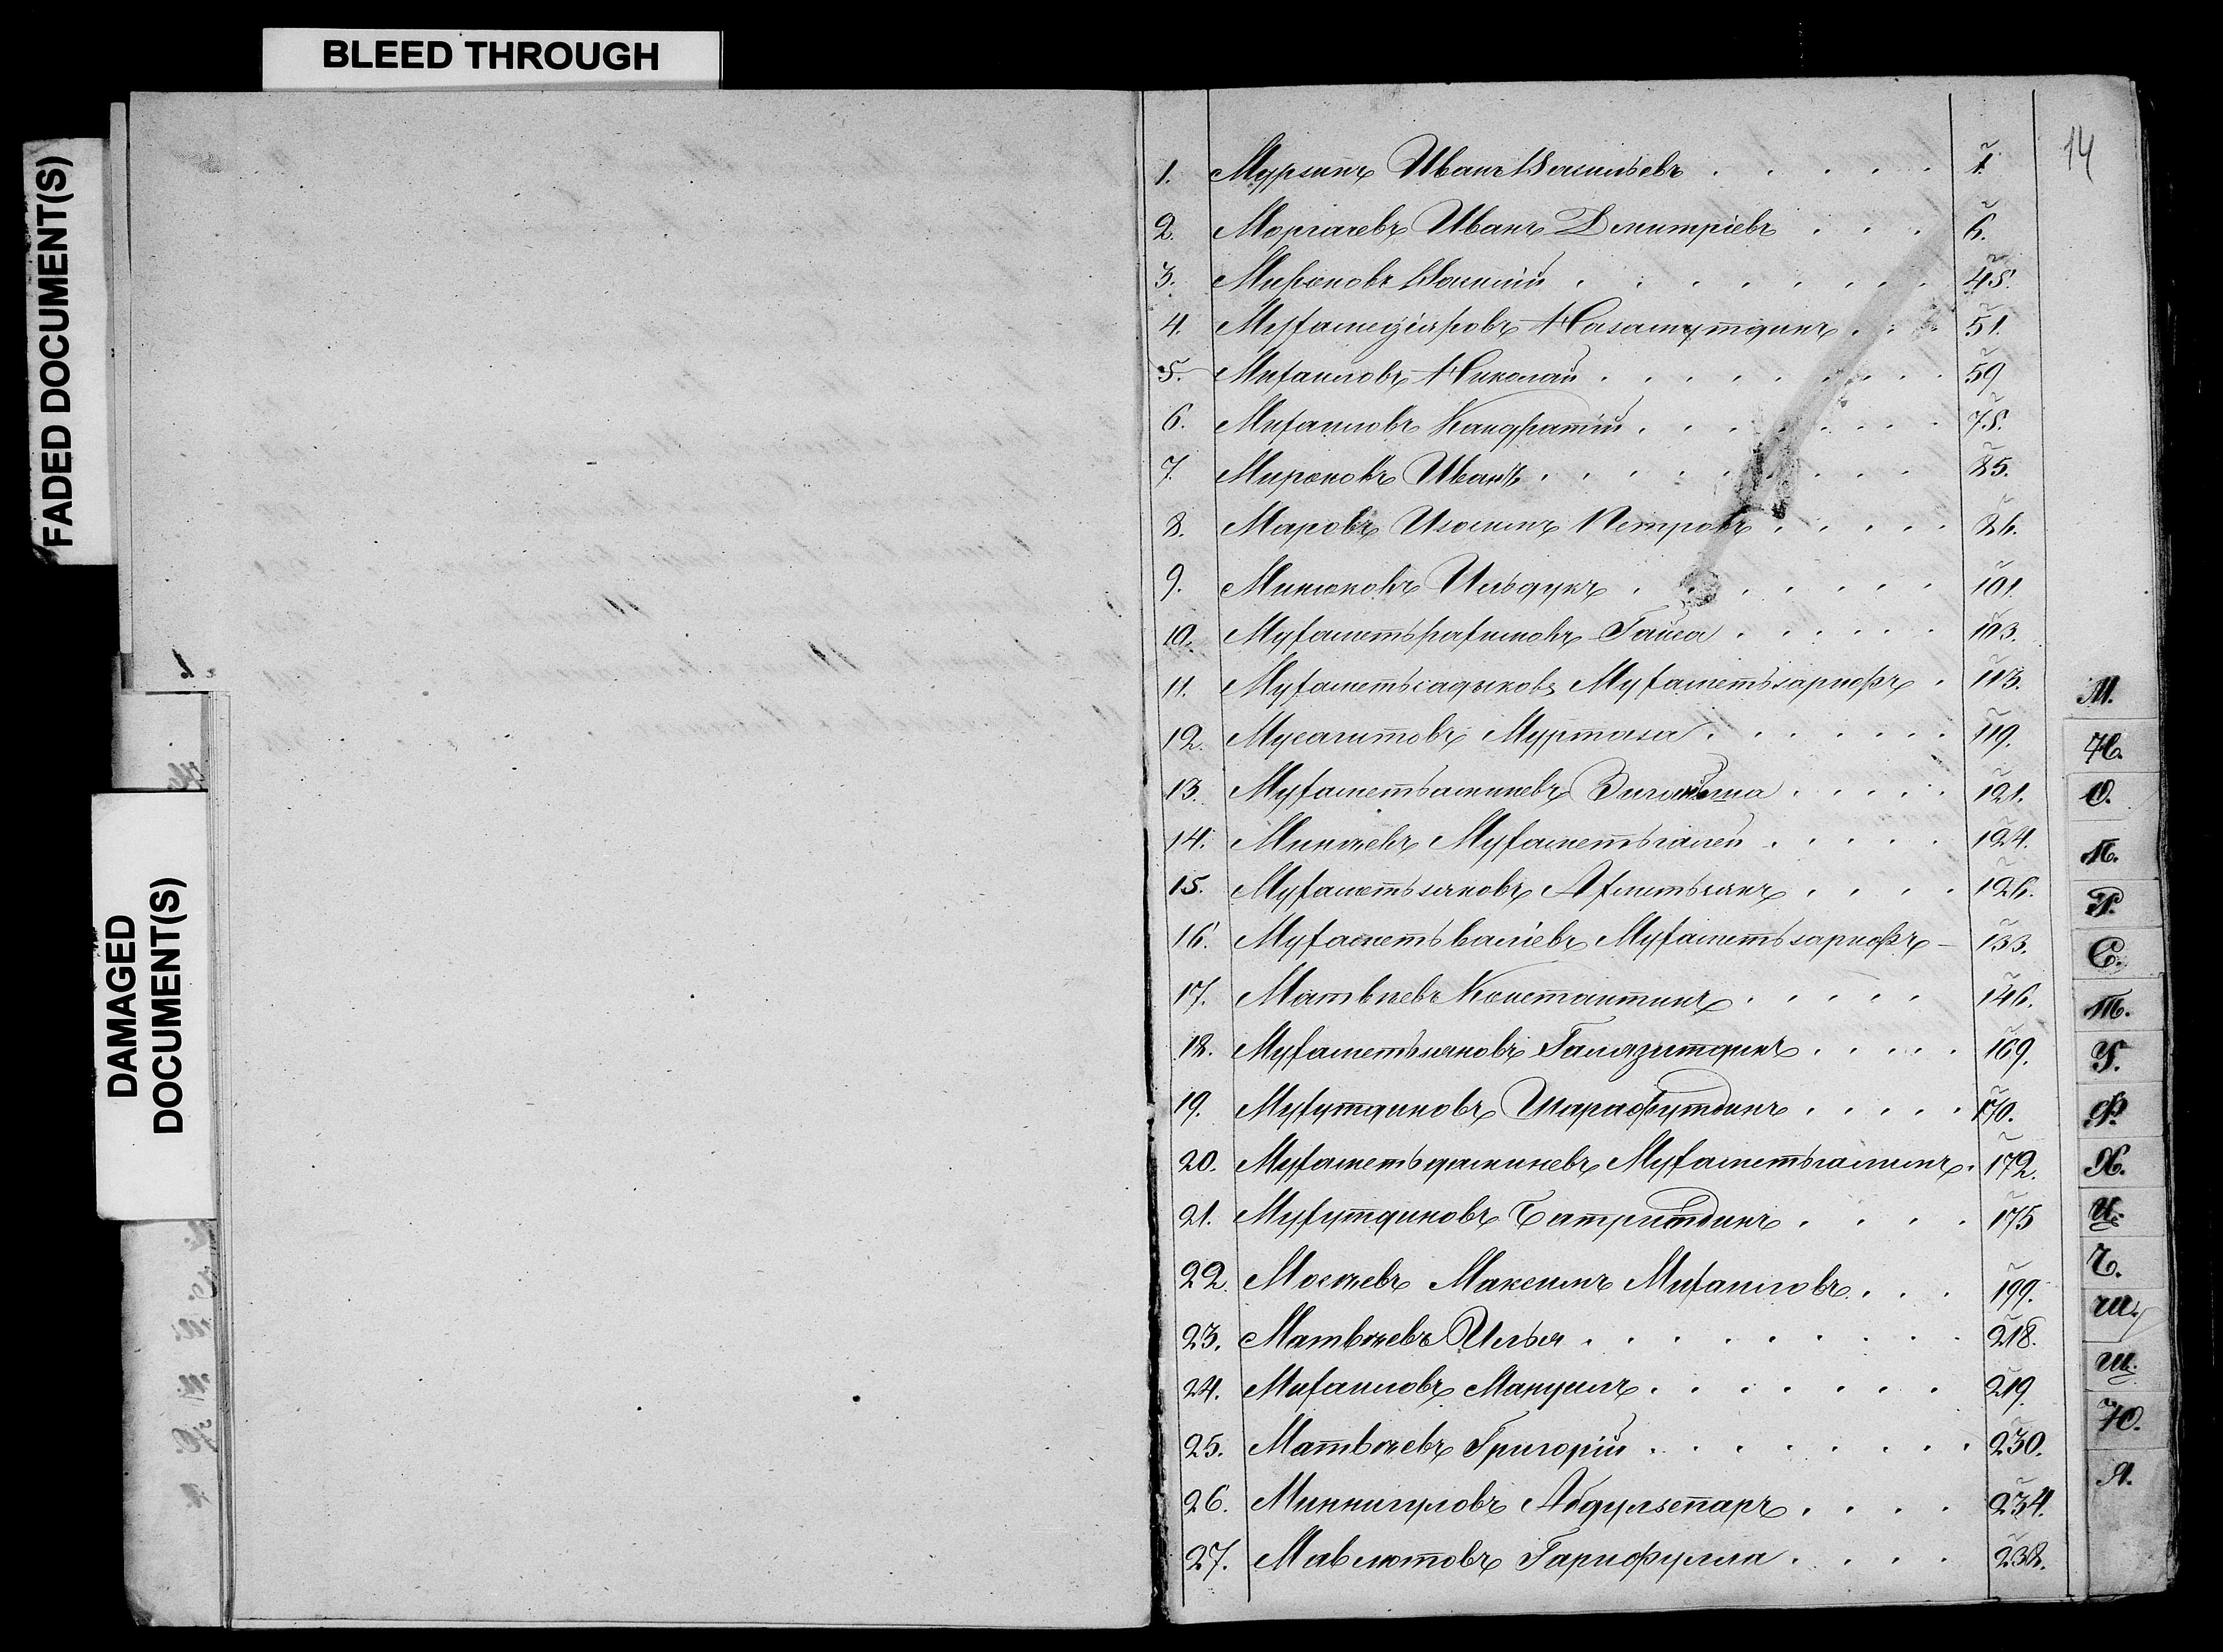 BLEED THROUGH
FADED DOCUMENT(S)
DAMAGED
DOCUMENT(S)
14
1. Мурзинъ Иванъ Васильевъ 1.
2. Моргачевъ Иванъ Дмитріевъ 6.
3. Мироновъ 45.
4. Мухамедіяровъ Низамутдинъ 51.
5. Михаиловъ Николай 59
6. Михаиловъ Кандратій 75.
7. Мироновъ Иванъ 85.
8. Маровъ Изосимъ Петровъ 86.
9. Минюковъ Ильдукъ 101
10. Мухаметърахимовъ Гайса 103.
11. Мухаметьсадыковъ Мухаметьзарифъ 113.
12. Мусагитовъ Муртаза 119.
13. Мухаметьаминевъ 121.
14. Минаевъ Мухаметьгалей 124.
15. Мухаметьяновъ Ахметьянъ 126.
16. Мухаметьваліевъ Мухаметьзарифъ 133.
17. Матвѣевъ Констант‌инъ 146.
18. Мухаметьяновъ Галязитдинъ 169.
19. Мухутдиновъ Шарафутдинъ 170.
20. Мухаметьдаминевъ Мухаметьгалимъ 172.
21. Мухутдиновъ Батритдинъ 175
22. Мосеевъ Максимъ Михаиловъ 199.
23. Матвѣевъ Илья 218.
24. Михаиловъ Мануилъ 219
25. Матвѣевъ Григорій 230.
26. Миннигуловъ Абдулзепаръ 234.
27. Мавлютовъ Гарифулла 238.
М.
Н.
О.
П.
Р.
С.
Т.
У.
Ф.
Х.
Ц.
Ч.
Ш.
Щ.
Ю.
Я.